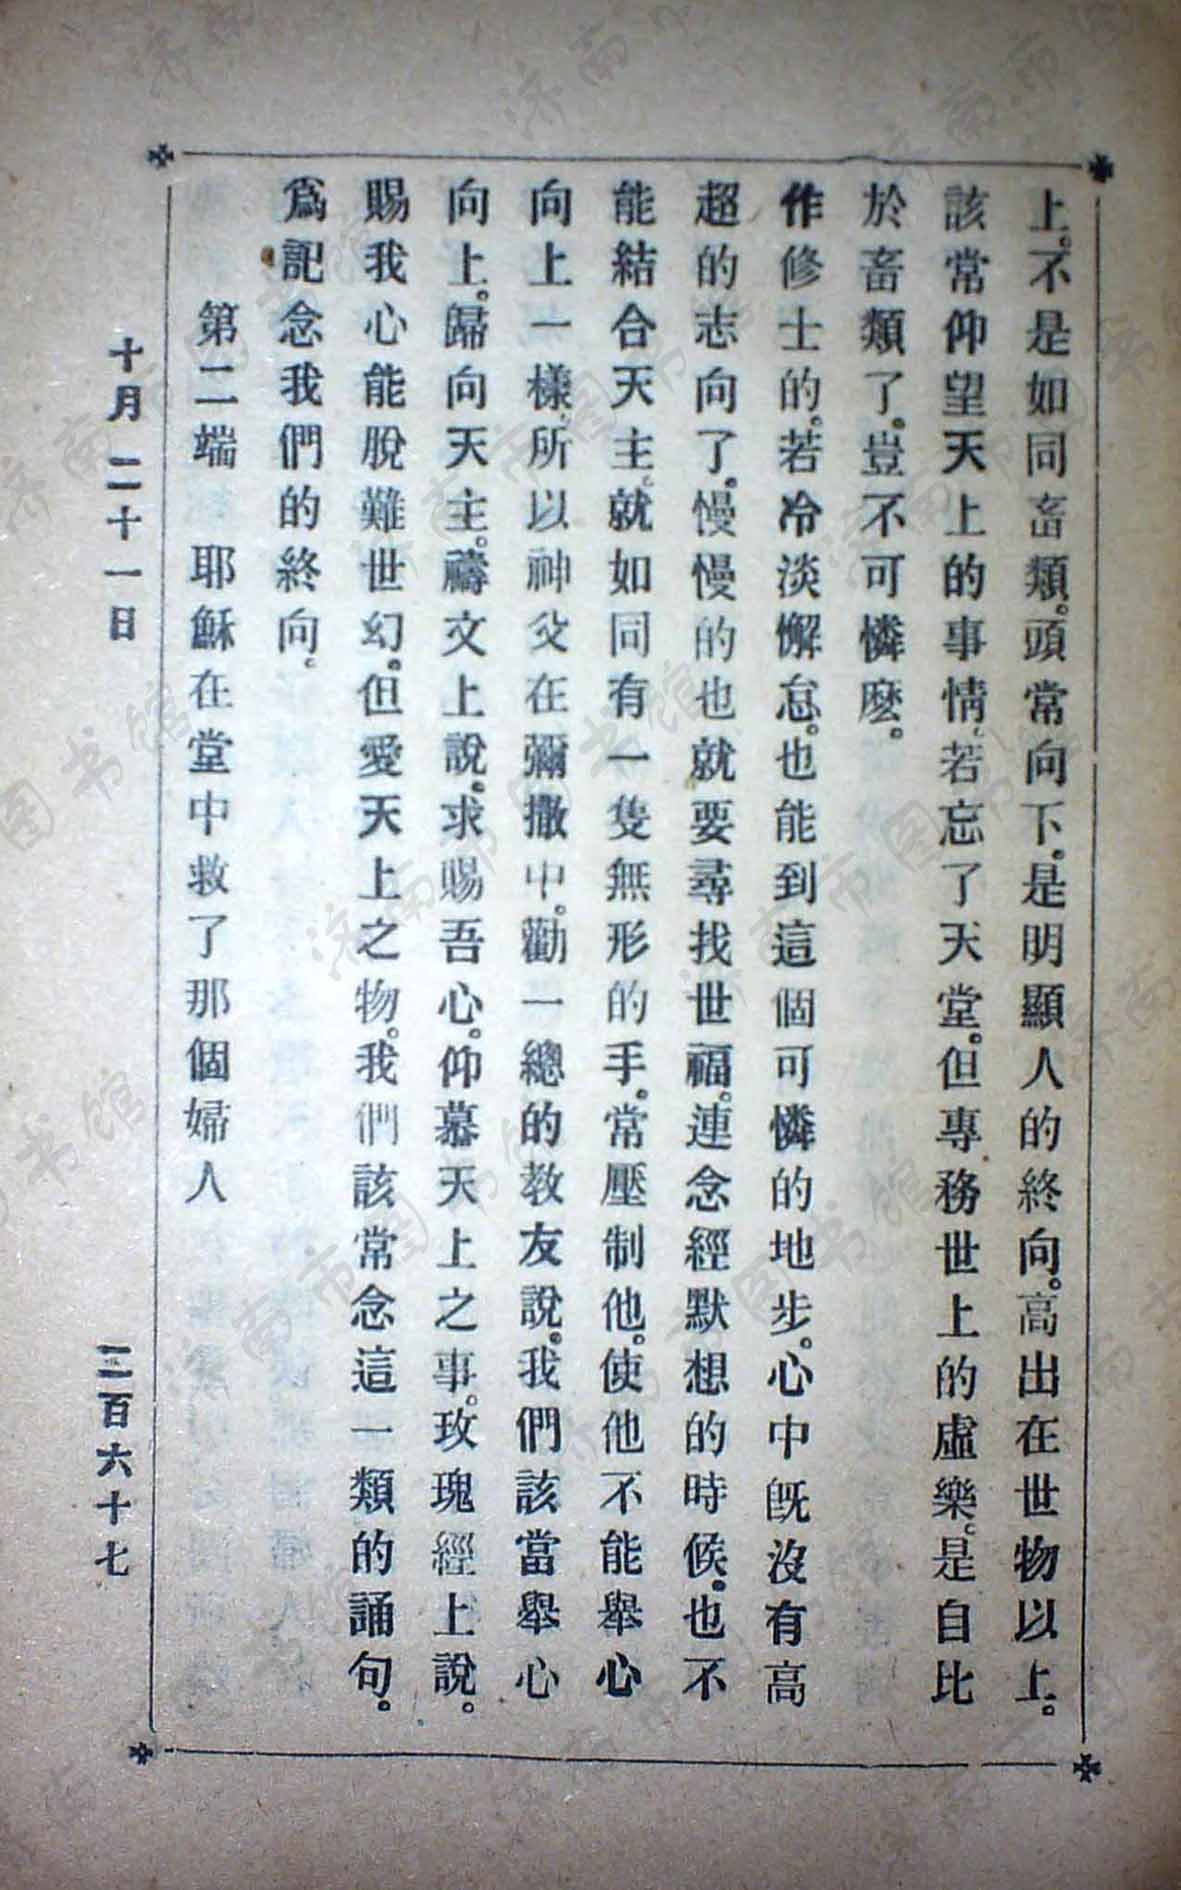 上。不是如同畜類。頭常向下。是明顯人的終向。高出在世物以上。
該常仰望天上的事情。若忘了天堂。但專務世上的虛樂。是自比
於畜類了。豈不可憐麽。
作修士的。若冷淡懈怠。也能到這個可憐的地步。心中旣沒有高
超的志向了。慢慢的也就要尋找世福。連念經默想的時候。也不
能結合天主。就如同有一隻無形的手。常壓制他。使他不能舉心
向上一樣。所以神父在彌撒中。勸一總的教友說。我們該當舉心
向上。歸向天主。禱文上說。求賜吾心。仰慕天上之事。玫瑰經上說。
賜我心能脫難世幻。但愛天上之物。我們該常念這一類的誦句。
爲記念我們的終向。
第二端 耶穌在堂中救了那個婦人
十月 二十一日 二百六十七
济南市图书馆